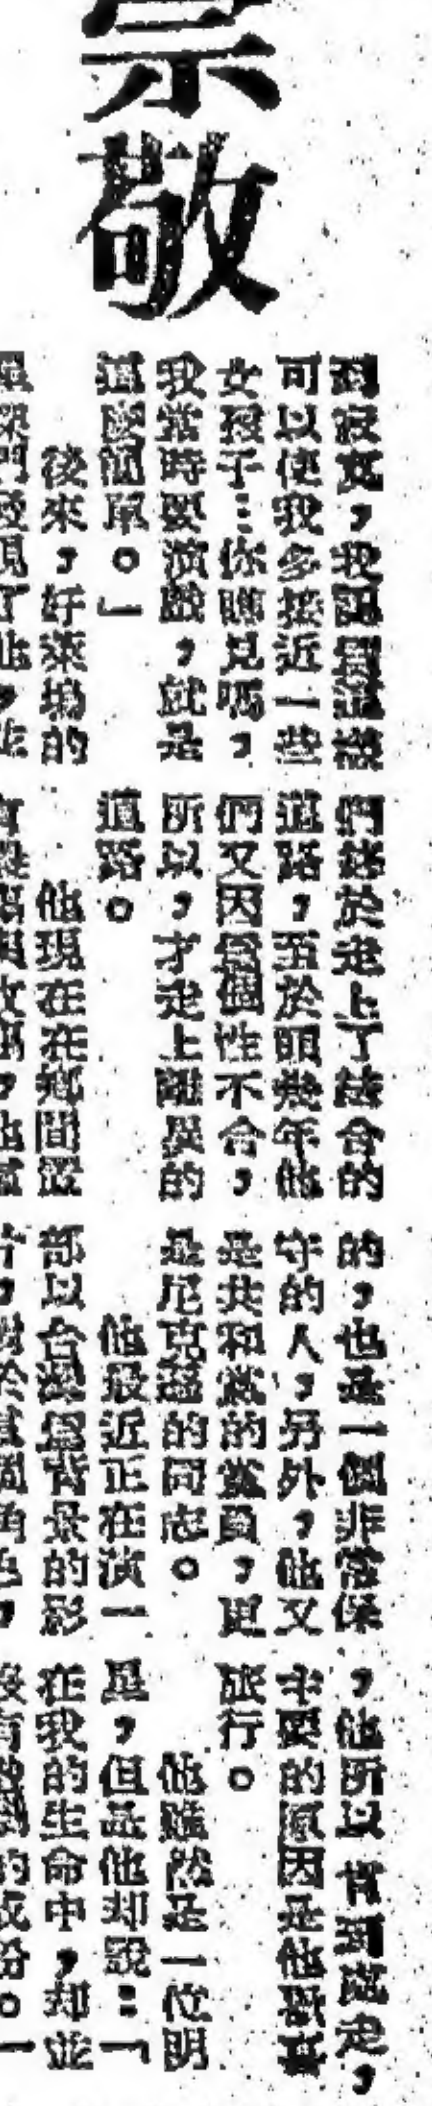 崇敬
到寂寞，我認爲這樣
可以使我多接近一些
女孩子：你瞧見嗎，
我當時要演戲，就是
這麼簡單。」
後來，好萊塢的
們終於走上了結合的
道路，至於前幾年他
們又因爲個性不合，
所以，才走上離異的
道路。
他現在在鄉間置
的，也是一個非常保
守的人，另外，他又
是共和黨的黨員，更
是尼克遜的同志。
他最近正在演一
部以台灣爲背景的影
，他所以肯到處走，
主要的原因是他歡喜
旅行。
他雖然是一位明
星，但是他却說：「
在我的生命中，却並